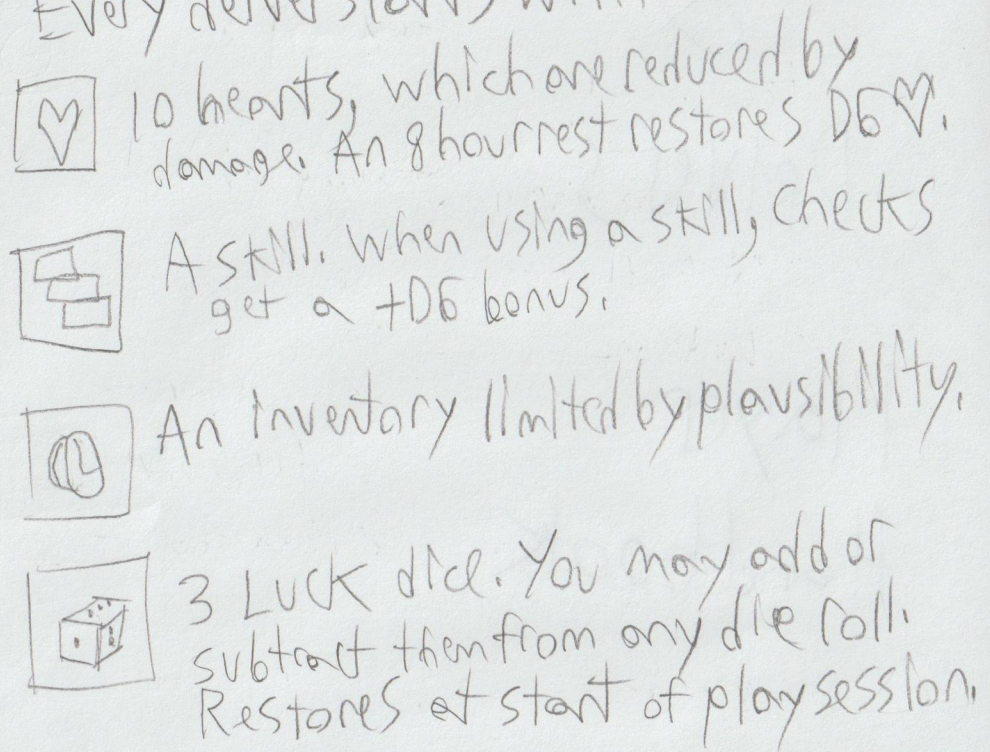 Every delver starts with
10 hearts, which are reduced by
damage. An 8 hour rest restores D6 ♡.
A skill. When using a skill, checks
get a +D6 bonus.
An inventory limited by plausibility.
3 Luck dice. You may add or
subtract them from any die roll.
Restores at start of play session.